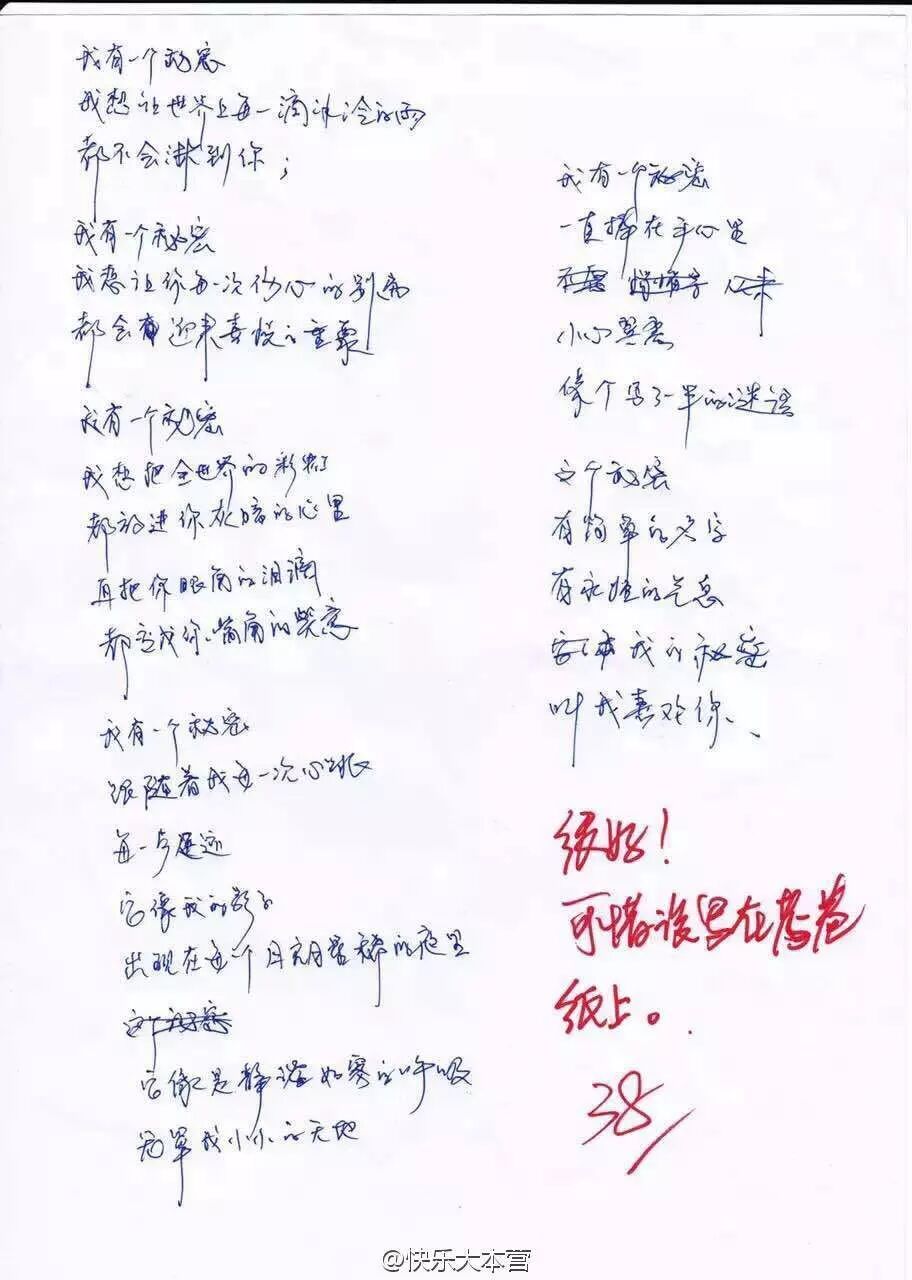 我有一个秘密
我想让世界上每一滴冰冷的雨
都不会淋到你；
我有一个秘密
我想让你每一次伤心的别离
都会有迎来喜悦的重聚
我有一个秘密
我想把全世界的彩虹
都放进你灰暗的心里
再把你眼角的泪滴
都变成你嘴角的笑意
我有一个秘密
跟随着我每一次心跳
每一步足迹
它像我的影子
出现在每一个月亮星稀的夜里
这个秘密
它像是静谧如雾的呼吸
笼罩我小小的天地
我有一个秘密
一直捧在手心里
小心翼翼
像个写了一半的谜语
这个秘密
有简单的名字
有永恒的气息
我的秘密
叫我喜欢你、
很好！
可惜没写在考卷
纸上。
38
@快乐大本营